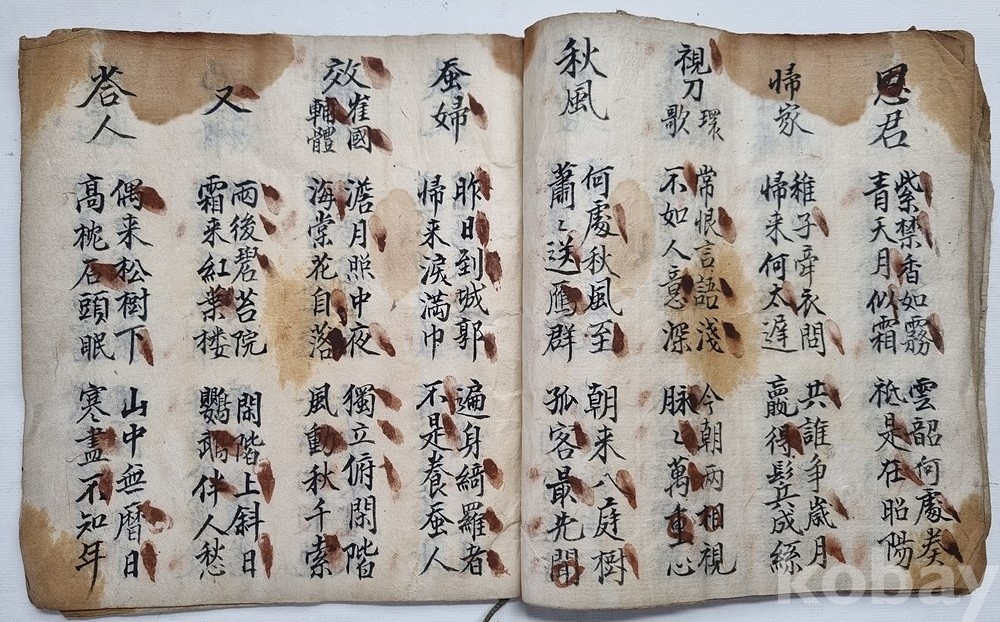 思君
紫禁香如霧
青天月似霜
雲韶何處奏
祗是在昭陽
帰家
稚子牽衣問
帰来何太遅
共誰争歲月
贏得鬂成絲
視刀環歌
常恨言語淺
不如人意深
今朝兩相視
脉〻萬重心
秋風
何處秋風至
蕭〻送鴈群
朝来入庭樹
孤客最先聞
蚕婦
昨日到城郭
帰来淚滿巾
遍身綺羅者
不是養蚕人
效崔國輔體
澹月照中夜
海棠花自落
獨立俯閑階
風動秋千索
又
雨後碧苔院
霜来紅葉楼
閑階上斜日
鸚鵡伴人愁
答人
偶来松樹下
高枕石頭眠
山中無曆日
寒盡不知年
kobay